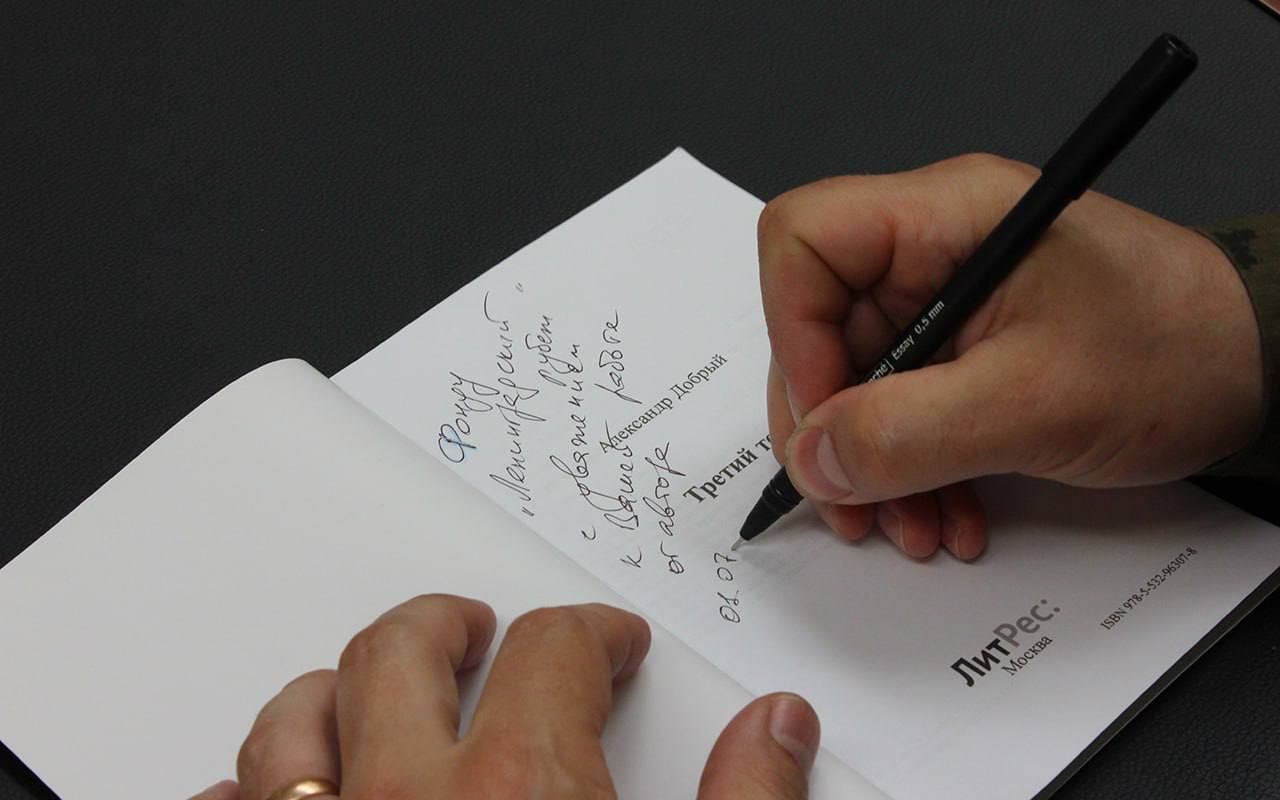 Фонду
"Ленинградский
рубеж"
с уважением
к Вашей работе
от автора
01.07
Александр Добрый
Третий
ЛитРес:
Москва
ISBN 978-5-532-96307-8
Essay 0,5 mm